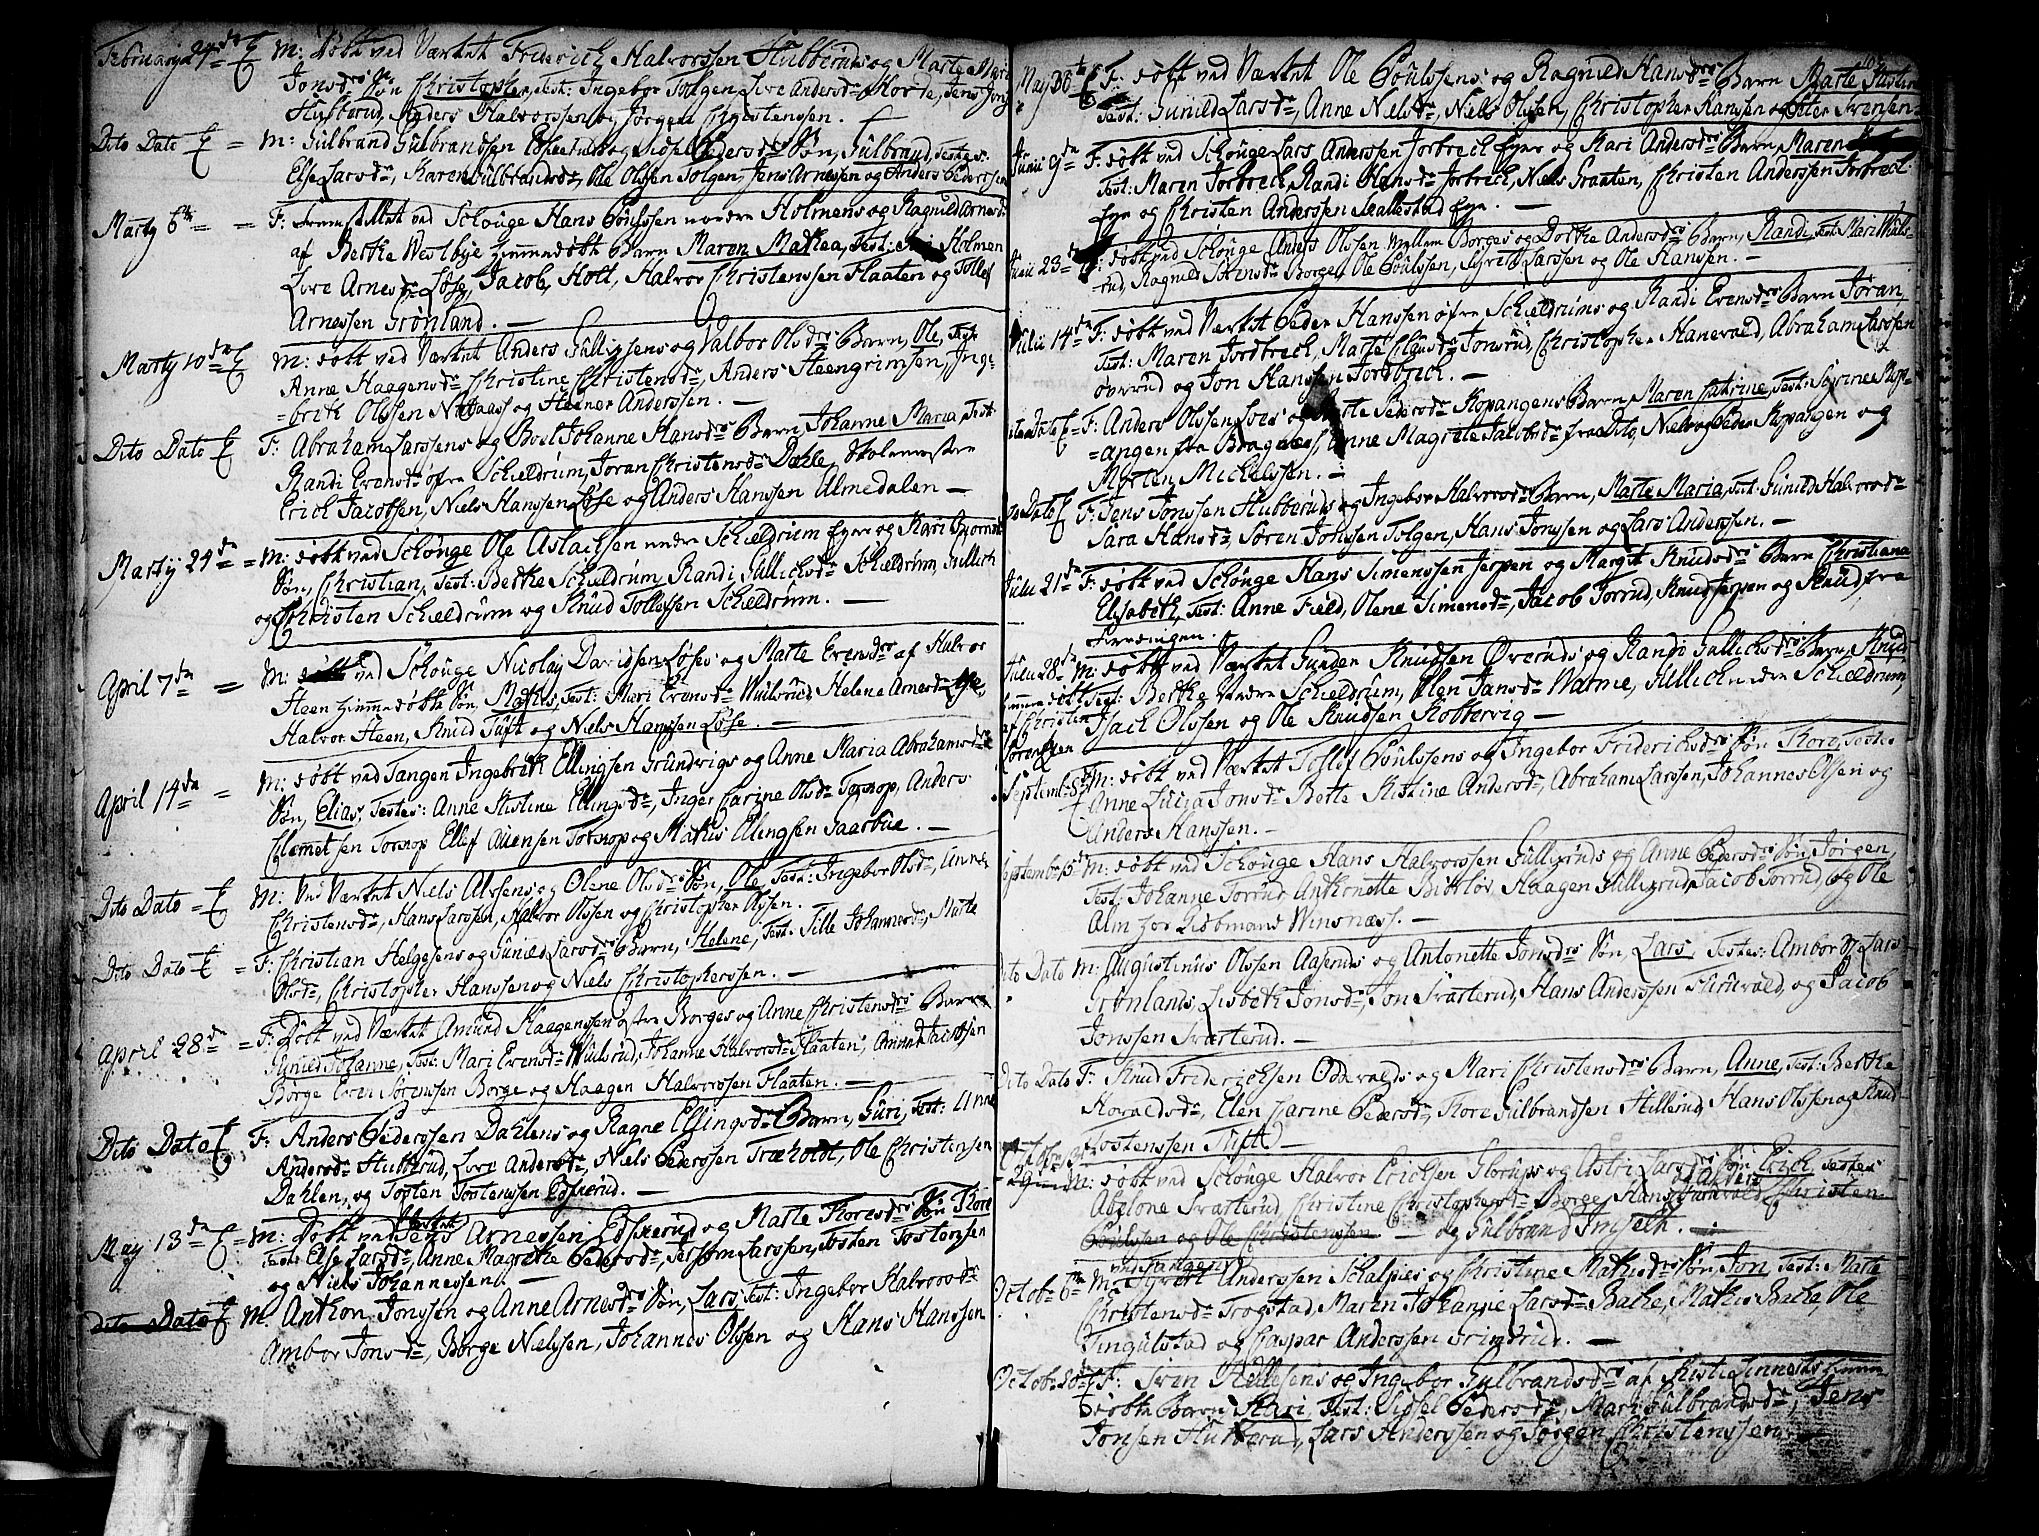 February 24de M: Døbt ved Værket Friderich Halvorssen Hubberuds og Marte Mari
Jonsdrs Søn Christopher, Test: Ingebor Tolgen, Live Andersdr Horde, Jens Jons
Hubberud, Anders Halvorssen og Jørgen Christenssen. —
Dito Dato M: Gulbrand Gulbrandsen og Sidsel Pedersdrs Søn, Gulbrand, Testes:
Else Larsdr, Karen Gulbrandsdr, Ole Olssen Tolgen, Jens Arnessen og Anders Pederssen
Marty 6te F: fremstillet ved Schouge Hans Poulssen nordre Holmens og Ragnild Arnesdr
af Berthe Westbye hiemmedøbt Barn Maren Mathea, Test: Holmen
Live Arnesdr Løse, Jacob Holt, Halvor Christenssen Flaaten og Tollef
Arnessen Grønland. —
Marty 10de M: døbt ved Værket Anders Gullixsens og Valbor Olsdrs Barn, Ole, Test:
Anne Haagensdr Christine Christensdr, Anders Steengrimsen, Inge-
=brik Olssen og Steener Anderssen. —
Dito Dato F: Abraham Larssens og Boel Johanne Hansdrs Barn, Johanne Maria, Test:
Randi Evensdr øfre Schieldrum, Joran Christensdr Dahle, Skolemester
Erich Jacobsen, Niels Hanssen Løse og Anders Hanssen Almedalen —
Marty 24de M: døbt ved Schouge Ole Aslachsen nedre Schieldrum Eyer og Kari
Søn, Christian, Test: Berthe Schieldrum, Randi Gullichsdr Schieldrum, Gullich
og Christen Schieldrum og Knud Tollefsen Schieldrum. —
April 7de M: døbt ved Schouge Nicolay Davidsen Løses og Marte Evensdrs af Halvor
Heen hjemmedøbte Søn, Mathis, Test: Mari Evensdr Wulsrud, Helene Arnesdr Løse,
Halvor Heen, Knud Tuft og Niels Hanssen Løse. —
April 14de M: døbt ved Tangen Ingebreth Ellingsen Grundvigs og Anne Maria Abrahamsdrs
Søn, Elias, Testes: Anne Kistine Ellingsdr, Inger Carine Olsdr Tornop, Anders
Clemetsen Tornop Ellef Auensen Tornop og Mathis Ellingsen Gaarbue. —
Dito Dato M: Ved Værket Niels Alvsens og Olene Olsdrs Søn, Ole, Test: Ingebor Olsdr, Anne
Christensdr, Hans Larssen, Halvor Olssen og Christopher Olssen.
Dito Dato F: Christian Helgesens og Gunild Larsdrs Barn, Helene, Test: Sille Johannesdr, Marte
Olsdr, Christopher Hanssen og Niels Christopherssen. —
April 28de F: Døbt ved Værket Amund Haagenssen øfre Borges og Anne Christensdrs Barn
Gunild Johanne, Test: Mari Evensdr Wulsrud, Johanne Halvorsdr Flaaten, Amund Jacobsen
Borge Even Sørenssen Borge og Haagen Halvorssen Flaaten. —
Dito Dato F: Anders Pederssen Dahlens og Ragne Ellingsdrs Barn, Guri, Test: Anne
Andersdr Hubberud, Live Andersdr, Niels Pederssen Træholdt, Ole Christensen
Dahlen, og Tosten Tostenssen Edsrud. —
May 13de M: Døbt ved Værket Jens Arnessen Edsrud og Marte Thoresdrs Søn Thore
Test: Else Larsdr, Anne Magrethe Pedersdr, Jersom Larssen, Tosten Tostensen
og Niels Johannessen. —
Dito Dato M: Anthon Jonssen og Anne Arnesdrs Søn, Lars, Test: Ingebor Halvorsdr
Ambor Jonsdr, Borge Nielssen, Johannes Olssen og Hans Hanssen
May F: døbt ved Værket Ole Poulssens og Ragnild Hansdrs Barn Marte
Test: Gunild Larsdr, Anne Nielsdr, Niels Olssen, Christopher Hanssen og Peter Svensen
Junii 9de F: døbt ved Schouge Lars Anderssen Jorbrech Eyer og Kari Andersdrs Barn, Maren
Test: Maren Jorbrech, Randi Hansdr Jorbrech, Niels Graaten, Christen Anderssen Jorbrech
Eyer og Christen Anderssen Skallestad Eyer. —
Junii 23de F: døbt ved Schouge Anders Olssen mellem Borges og Dorthe Andersdrs Barn, Randi, Test: Mari Wuls-
rud, Ragnild Sørensdr Borge, Ole Poulssen, Syver Larssen og Ole Hanssen. —
Julii 14de F: døbt ved Værket Peder Hanssen øfre Schieldrums og Randi Evensdrs Barn Joran
Test: Maren Jordbrech, Marte Clausdr Jonsrud, Christopher Hanevald, Abraham Larssen
øverud og Jon Hanssen Jordbrech. —
Dito Dato F: Anders Olssen Lves og Marte Pedersdr Kopangens Barn, Maren Catrine, Test: Syverine Kop-
=angen fra Bragnæs, Anne Magrete Jacobsdr fra Dito, Niels og Peder Kopangen og
Morten Michelssen. —
Dito Dato F: Jens Jonssen Hubberuds og Ingebor Halvorsdrs Barn, Marte Maria, Test: Gunild Halvorsdr
Sara Hansdr, Søren Jonssen Tolgen, Hans Jonssen og Lars Anderssen. —
Julii 21de F: døbt ved Schouge Hans Simenssen Jerpen og Margit Knudsdrs Barn Christiana
Elisabeth, Test: Anne Field, Olene Simensdr, Jacob Torrud, Knud Jerpen og Knud fra
Julii 28de M: døbt ved Værket Gunder Knudssen Øveruds og Randi Gullichsdrs Barn, Knud
hjemmedøbt Test: Berthe nedre Schieldrum, Elen Jansdr Warne, Gullich nedre Schieldrum,
af Christen Isach Olssen og Ole Knudssen Kobbervig —
Lorentzen
Septemb: M: døbt ved Værket Tollef Poulssens og Ingebor Friderichsdrs Søn Thore, Testes
Anne Luiza Jonsdr Berte Kistine Andersdr, Abraham Larssen, Johannes Olsen og
Anders Hanssen. —
Septemb: 15de M: døbt ved Schouge Hans Halvorssen Gullixruds og Anne Pedersdrs Søn Jørgen,
Test: Johanne Torrud, Anthonette Bidtløv, Haagen Gullixrud, Jacob Torrud, og Ole
Alm for Lisbmand Winsnæss. —
Dito Dato M: Augustinus Olssen Aaseruds og Antonette Jonsdrs Søn, Lars, Testes: Ambor og Lars
Grønlands, Lisbeth Jonsdr, Jon Svarterud, Hans Anderssen Sturvald, og Jacob
Jonssen Svarterud. —
Dito Dato F: Knud Friderichsen Oddevalds og Mari Christensdrs Barn, Anne, Test: Berthe
Hovaldsdr, Elen Carine Pedersdr, Thore Gulbrandsen Hillerud, Hans Olssen og Knud
Tostenssen Tuft —
29de M: døbt ved Schouge Halvor Erichsen Glorups og Astri Larsdrs Søn Erich, Testes
Abelone Svarterud, Christine Christophersdr Borge Hans og Anders Sturvald, Christen
Poulssen og Ole Christenssen — og Gulbrand Imseth. —
ved Tangen
Octob: 6te M: Syvert Anderssen Schalpies og Christine Mathisdrs Søn, Jon, Test: Marte
Christensdr Trogstad, Maren Johanne Larsdr Bache, Mathis Bache, Ole
Tingulstad og Caspar Anderssen Grimsrud. —
Octob: 20de F: Sven Kittelsens og Ingebor Gulbrandsdrs af Kisti hiemme
døbte Barn Kari, Test: Sidsel Pedersdr, Mari Gulbrandsdr, Jens
Jonsen Hubberud, Lars Anderssen og Jørgen Christenssen